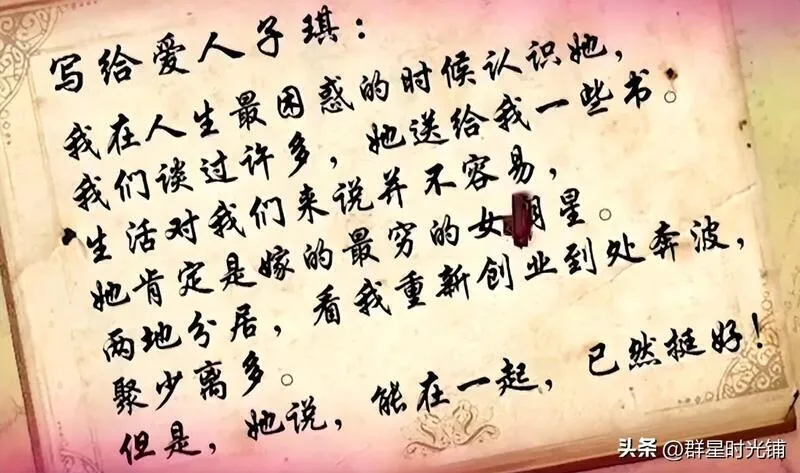 写给爱人子琪：
我在人生最困惑的时候认识她，
我们谈过许多，她送给我一些书。
生活对我们来说并不容易，
她肯定是嫁的最穷的女明星。
两地分居，看我重新创业到处奔波，
聚少离多。
但是，她说，能在一起，已然挺好！
头条 @群星时光铺